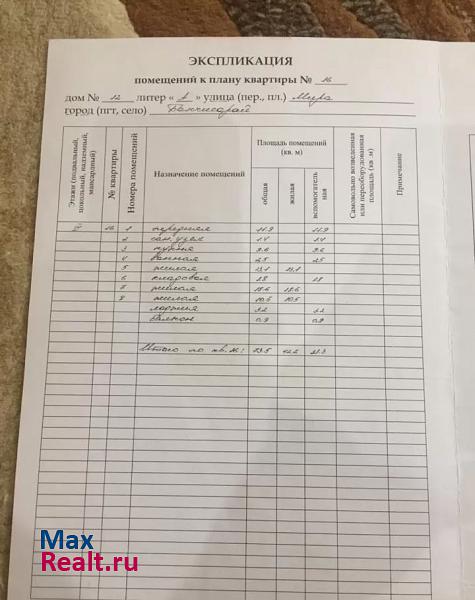 ЭКСПЛИКАЦИЯ
помещений к плану квартиры № 16
дом № 12 литер « А » улица (пер., пл.) Мира
город (пгт, село) Бахчисарай
Этажи (подвальный, цокольный, надземный, мансардный)
№ квартиры
Номера помещений
Назначение помещений
Площадь помещений (кв. м)
общая
жилая
вспомогательная
Самовольно возведенная или переоборудованная площадь (кв .м)
Примечание
16 1 передняя 11.9 11.9
2 сан. узел 1.4 1.4
3 кухня 9.6 9.6
4 ванная 2.5 2.5
5 жилая 13.1 13.1
6 кладовая 1.8 1.8
7 жилая 18.6 18.6
8 жилая 10.5 10.5
лоджия 3.2 3.2
балкон 0.9 0.9
Итого по кв. №: 73.5 42.2 31.3
Max
Realt.ru